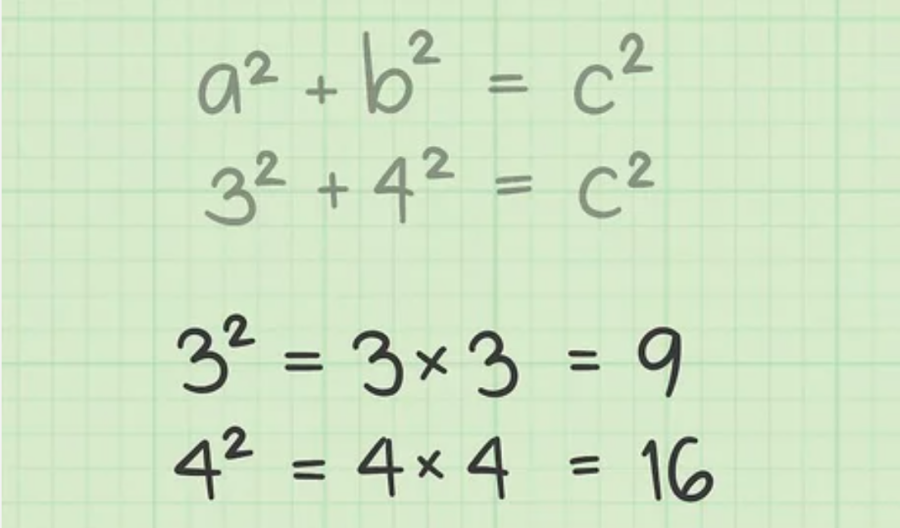 a² + b² = c²
3² + 4² = c²
3² = 3 × 3 = 9
4² = 4 × 4 = 16